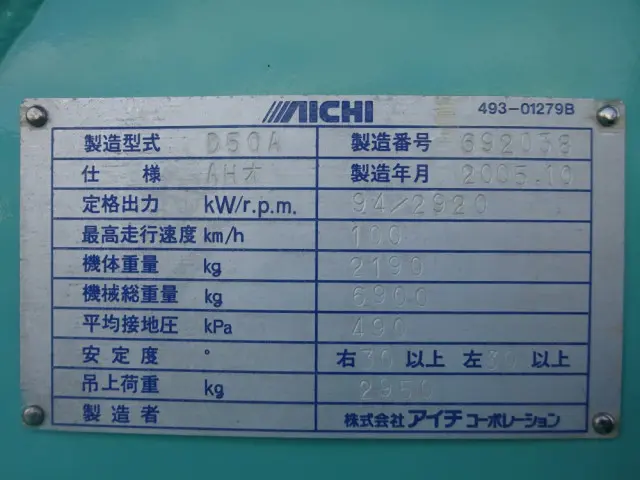 AICHI 493-01279B
製造型式 D50A 製造番号 692038
仕様 AHオ 製造年月 2005.10
定格出力 kW/r.p.m. 94/2920
最高走行速度 km/h 100
機体重量 kg 2190
機械総重量 kg 6900
平均接地圧 kPa 490
安定度 ° 右30以上 左30以上
吊上荷重 kg 2950
製造者 株式会社アイチコーポレーション